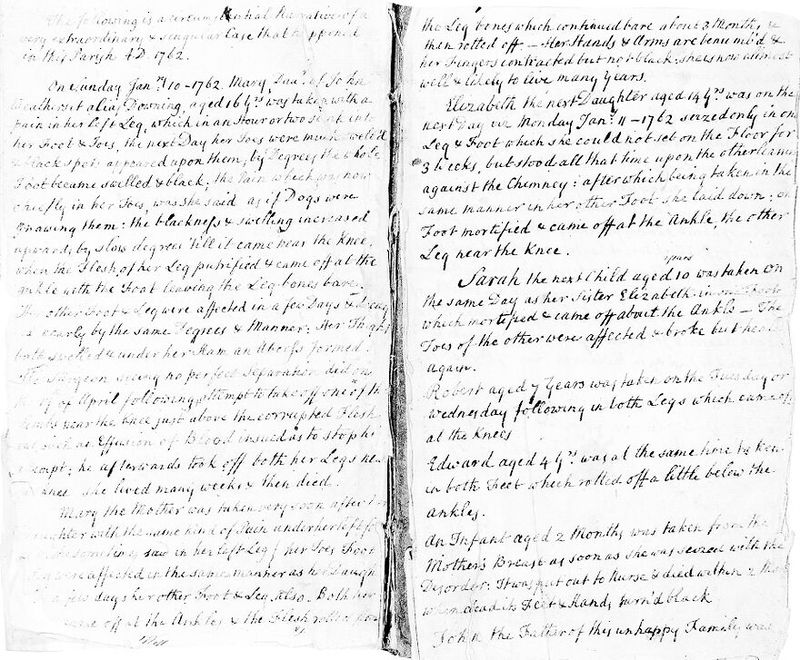 The following is a circumstantial Narrative of a
very extraordinary & singular Case that happened
in this Parish AD. 1762.
On Sunday Janry 10 - 1762 Mary, Daur. of John
alias Downing, aged 16 yrs was taken with a
pain in her left Leg, which in an Hour or two
her Foot & Toes, the next Day her Toes were much swell'd
& black spots appeared upon them; by Degrees the whole
Foot became swelled & black; the Pain which was now
chiefly in her Toes, was she said as if Dogs were
gnawing them: the blackness & swelling increased
upwards by slow degrees till it came near the Knee,
when the Flesh of her Leg putrified & came off at the
ankle with the Foot leaving the Leg bones bare.
The other Foot & Leg were affected in a few Days &
nearly by the same Degrees & Manner; Her Thighs
both swelled & under her Ham an Abcess formed.
The Surgeon seeing no perfect Separation did on
the of April following attempt to take off one of the
near the Knee just above the corrupted Flesh
such an Effusion of Blood insued as to stop his
attempt; he afterwards took off both her Legs near
Knee she lived many weeks & then died.
Mary the Mother was taken very soon after
Daughter with the same kind of Pain under her left
saw in her left Leg; her Toes Foot
were affected in the same manner as her Daugh
in a few days her other Foot & Leg also. Both her
came off at the Ankles & the Flesh rotted from
the Leg bones which continued bare about 3 Months &
then rotted off - Her Hands & Arms are benumb'd &
her Fingers contracted but not black: she is now almost
well & likely to live many Years.
Elizabeth the next Daughter aged 14 yrs was on the
next Day viz Monday Janry 11 - 1762 seized only in one
Leg & Foot which she could not set on the Floor for
3 Weeks, but stood all that time upon the other leaning
against the Chimney: after which being taken in the
same manner in her other Foot she laid down: one
Foot mortified & came off at the Ankle, the other
Leg near the Knee.
Sarah the next Child aged 10 years was taken on
the same Day as her Sister Elizabeth in one Foot
which mortified & came off about the Ankle - The
Toes of the other were affected & broke but heal'd
again.
Robert aged 7 Years was taken on the Tuesday or
Wednesday following in both Legs which came off
at the Knees
Edward aged 4 yrs was at the same time taken
in both Feet which rotted off a little below the
Ankles.
An Infant aged 2 Months was taken from the
Mother's Breast as soon as she was seized with the
Disorder; It was put out to Nurse & died within 2
when dead its Feet & Hands turn'd black
John the Father of this unhappy Family was